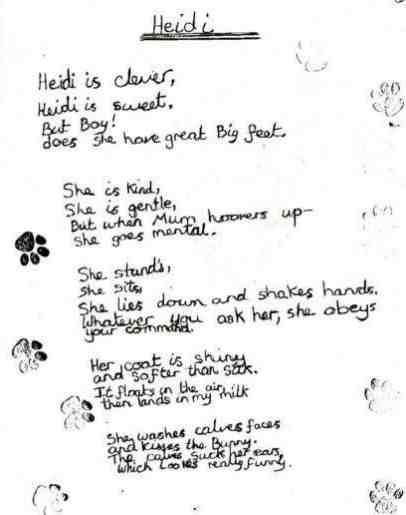 Heidi
Heidi is clever,
Heidi is sweet.
But Boy!
does she have great Big feet.
She is kind,
She is gentle,
But when Mum hoovers up-
She goes mental.
She stands,
She sits,
She lies down and shakes hands.
Whatever you ask her, she obeys
your command.
Her coat is shiny
and softer than silk.
It floats in the air,
then lands in my milk
She washes calves faces
and kisses the Bunny.
The calves suck her ears,
which looks really funny.